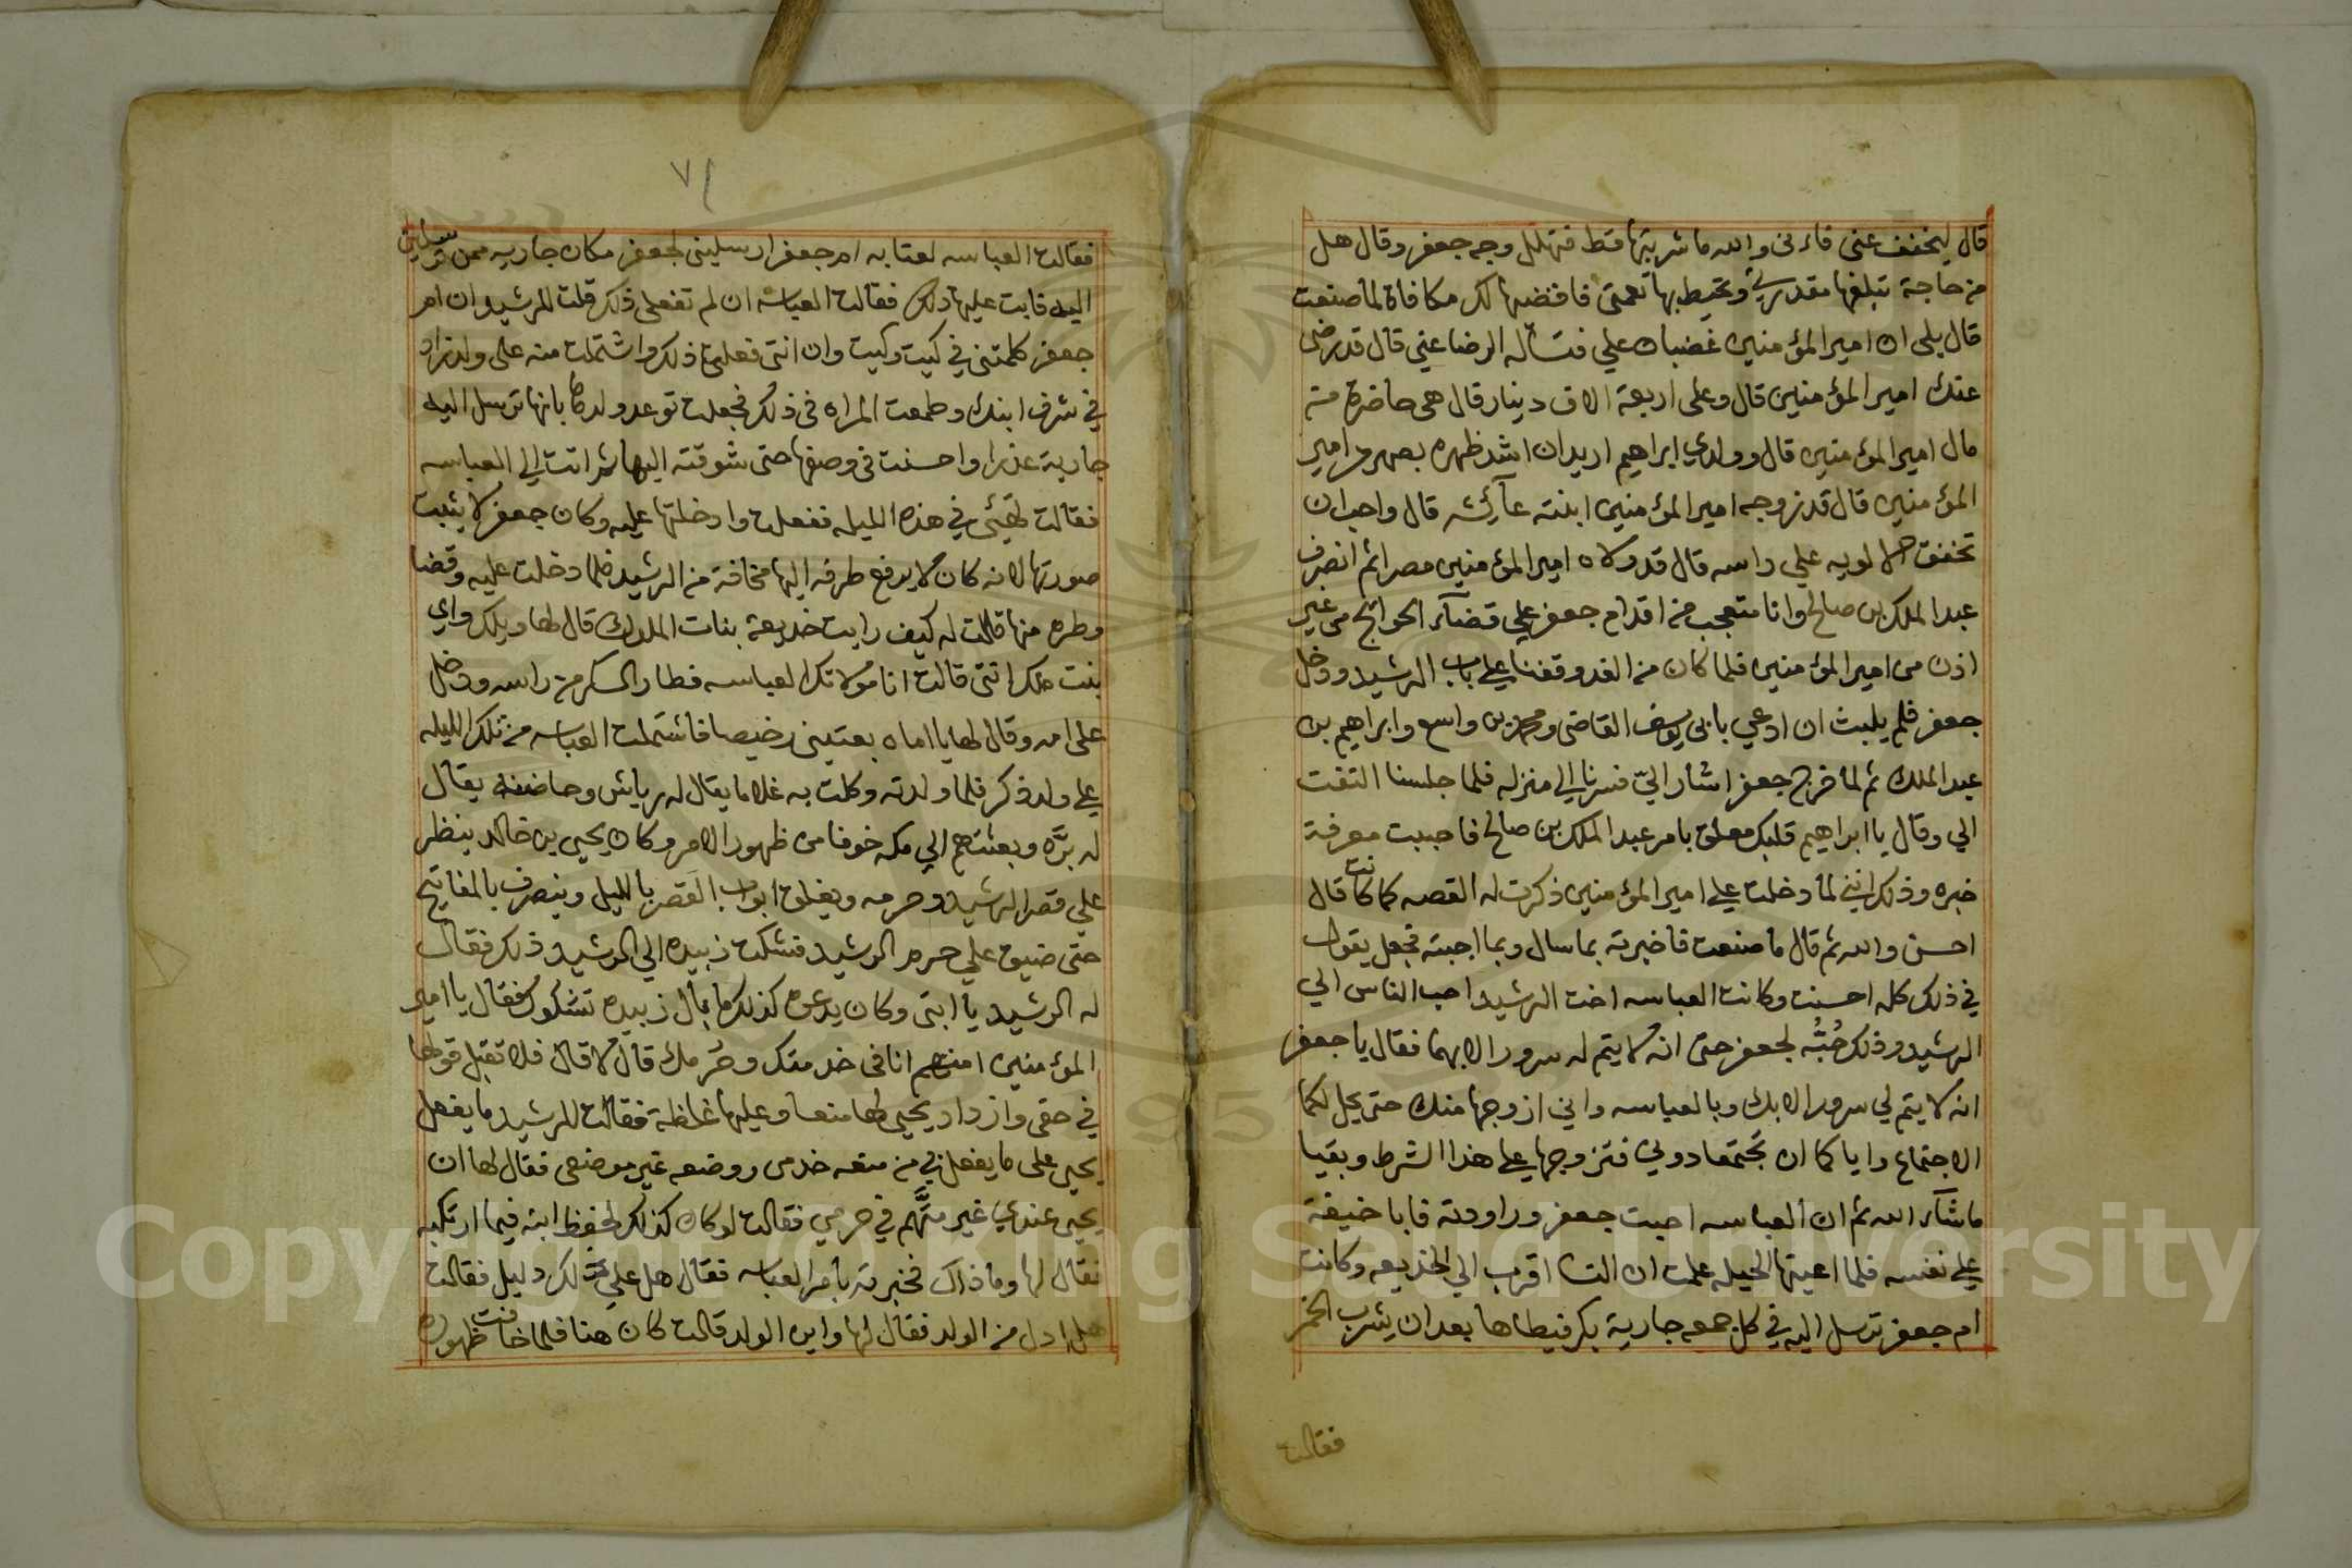 قال ليخفف عني فاءني والله ما شربتها قط فتهلل وجه جعفر وقال هل
من حاجة تبلغها مقدرتي وتحيط بها نعمتي فاقضيها لك مكافاة لما صنعت
قال بلى ان امير المؤمنين غضبان علي فتساله الرضا عني قال قد رضى
عنك امير المؤمنين قال وعلى اربعة الاف دينار قال هي حاضرة من
مال امير المؤمنين قال وولدي ابراهيم اريد ان اشد ظهره بصهر من امير
المؤمنين قال قد زوجه امير المؤمنين ابنته عآئشه قال واحب ان
تخفق الالويه علي راسه قال قد ولاه امير المؤمنين مصر ثم انصرف
عبد الملك بن صالح وانا متعجب من اقدام جعفر علي قضآء الحوائج من غير
اذن من امير المؤمنين فلما كان من الغد وقفنا علي باب الرشيد ودخل
جعفر فلم يلبث ان ادعي بابي يوسف القاضي ومحمد بن واسع وابراهيم بن
عبد الملك ثم لما خرج جعفر اشار اليّ فسرنا الي منزله فلما جلسنا التفت
الي وقال يا ابراهيم قلبك معلق بامر عبد الملك بن صالح فاحببت معرفة
خبره وذلك انني لما دخلت علي امير المؤمنين ذكرت له القصه كما كانت قال
احسن والله ثم قال ما صنعت فاخبرته بما سال وبما اجبته فجعل يقول
في ذلك كله احسنت وكانت العباسه اخت الرشيد احب الناس الي
الرشيد وذلك حُبُّه لجعفر حتى انه لا يتم له سرور الا بهما فقال يا جعفر
انه لا يتم لي سرور الا بك وبالعباسه واني ازوجها منك حتى يحل لكما
الاجتماع واياكما ان تجتمعا دوني فتزوجها علي هذا الشرط وبقيا
ما شآء الله ثم ان العباسه احبت جعفر وراودته فابا خيفة
علي نفسه فلما اعيتها الحيله علمت ان النسا اقرب الي الخديعه وكانت
ام جعفر ترسل اليه في كل جمعه جارية بكر فيطاها بعد ان يشرب الخمر
فقالت
٧١
فقالت العباسه لعتابه ام جعفر ارسليني لجعفر مكان جاريه ممن ترسلين
اليه فابت عليها ذلك فقالت العباسه ان لم تفعلي ذلك قلت للرشيد ان ام
جعفر كلمتني في كيت وكيت وان انتي فعلتي ذلك واشتملت منه على ولد زاد
في شرف ابنك وطمعت المراه في ذلك فجعلت توعد ولدها بانها ترسل اليه
جارية عذرا واحسنت في وصفها حتى شوقته اليها ثم اتت الي العباسه
فقالت تهيئي في هذه الليله ففعلت وادخلتها عليه وكان جعفر لا يثبت
صورتها لانه كان لا يرفع طرفه اليها مخافة من الرشيد فلما دخلت عليه وقضا
وطره منها قالت له كيف رايت خديعة بنات الملوك قال لها ويلك واي
بنت ملك انتي قالت انا مولاتك العباسه فطار السكر من راسه ودخل
على امه وقال لها يا اماه بعتيني رخيصا فاشتملت العباسه من تلك الليله
علي ولد ذكر فلما ولدته وكلت به غلاما يقال له رياش وحاضنه يقال
له برّه وبعثتهم الي مكه خوفا من ظهور الامر وكان يحيى بن خالد ينظر
علي قصر الرشيد وحرمه ويغلق ابواب القصر بالليل وينصرف بالمفاتيح
حتى ضيق علي حرم الرشيد فشكت زبيده الي الرشيد ذلك فقال
له الرشيد يا ابتي وكان يدعوه كذلك ما بال زبيده تشكوك فقال يا امير
المؤمنين امتهم انا في خدمتك وحُرمك قال لا قال فلا تقبل قولها
في حقي وازداد يحيى لها منعا وعليها غلظة فقالت للرشيد ما يفعل
يحيى على ما يفعل بي من منعه خدمي ووضعه غير موضعي فقال لها ان
يحيى عندي غير متَّهم في حرمي فقالت لو كان كذلك لحفظ ابنه فيما ارتكبه
فقال لها وما ذاك فخبرته بامر العباسه فقال هل علي ذلك دليل فقالت
هل ادل من الولد فقال لها واين الولد قالت كان هنا فلما خافت ظهوره
Copyright © King Saud University